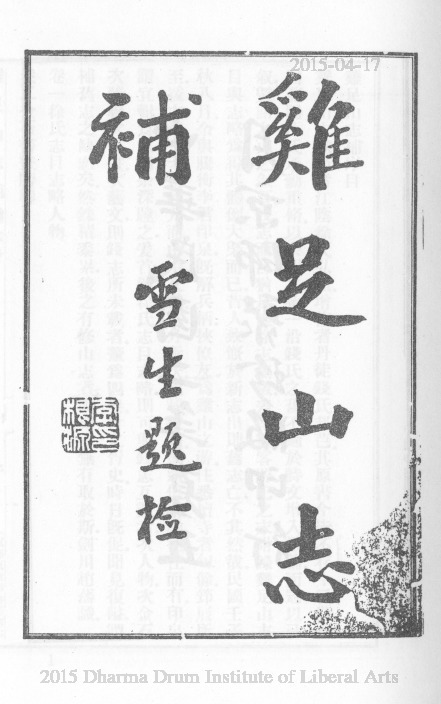 2015-04-17
雞足山志
補
雪生題检
李印
根源
2015 Dharma Drum Institute of Liberal Arts